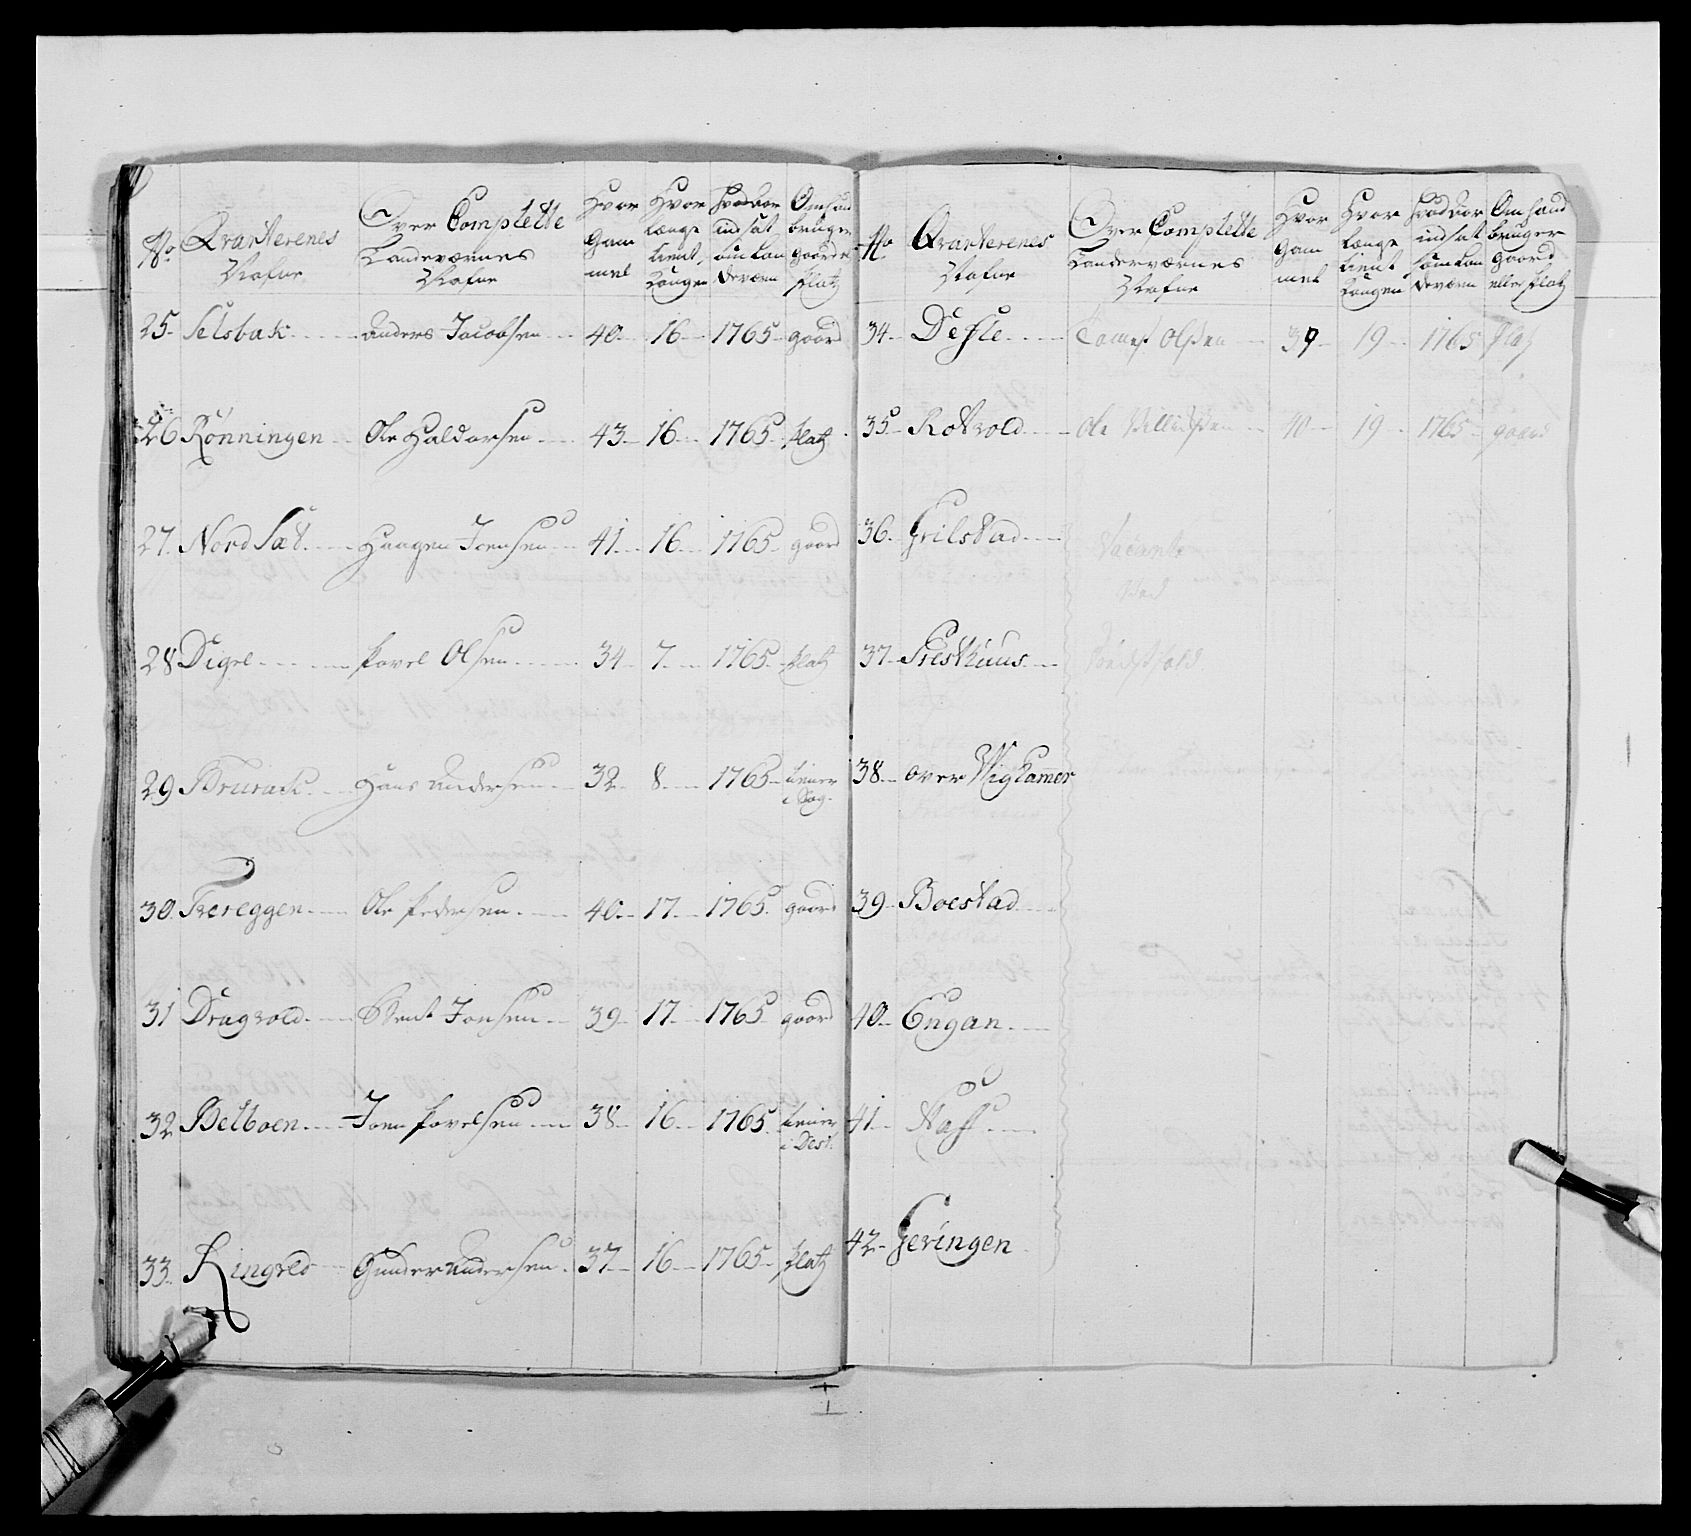 No Qvarterenes Nafne
Over Complette Landeværnes Nafne
Hvor Gammel
Hvor Længe tient Kongen
Hvad aar indsat som Landeværn
Om hand bruger gaord eller platz
25 Selsbak Anders Jacobsen 40 16 1765 gaord
26 Rønningen Ole Haldorsen 43 16 1765 platz
27 Nord Sæt Haagen Joensen 41 16 1765 gaord
28 Digel Povel Olsen 34 7 1765 platz
29 Bruratt Hans Andersen 32 8 1765 tiener
i Sog.
30 Tereggen Ole Pedersen 40 17 1765 gaord
31 Dragvold Bent Jonsen 39 17 1765 gaord
32 Belboen Joen Povelsen 38 16 1765 tiener
i Dest.
33 Ringved Gunder Andersen 37 16 1765 platz
No Qvarterenes Nafne
Over Complette Landerværnes Nafne
Hvor Gammel
Hvor længe tient Kongen
Hvad aar indsat som Landeværn
Om hand bruger gaord eller platz
34 Desle Tomes Olsen 39 19 1765 platz
35 Rotvold Ole 40 19 1765 gaord
36 Grilstad Vacante
Ved
37 Presthuus
38 over Wigkamer
39 Boestad
40 Engan
41
42 Geringen